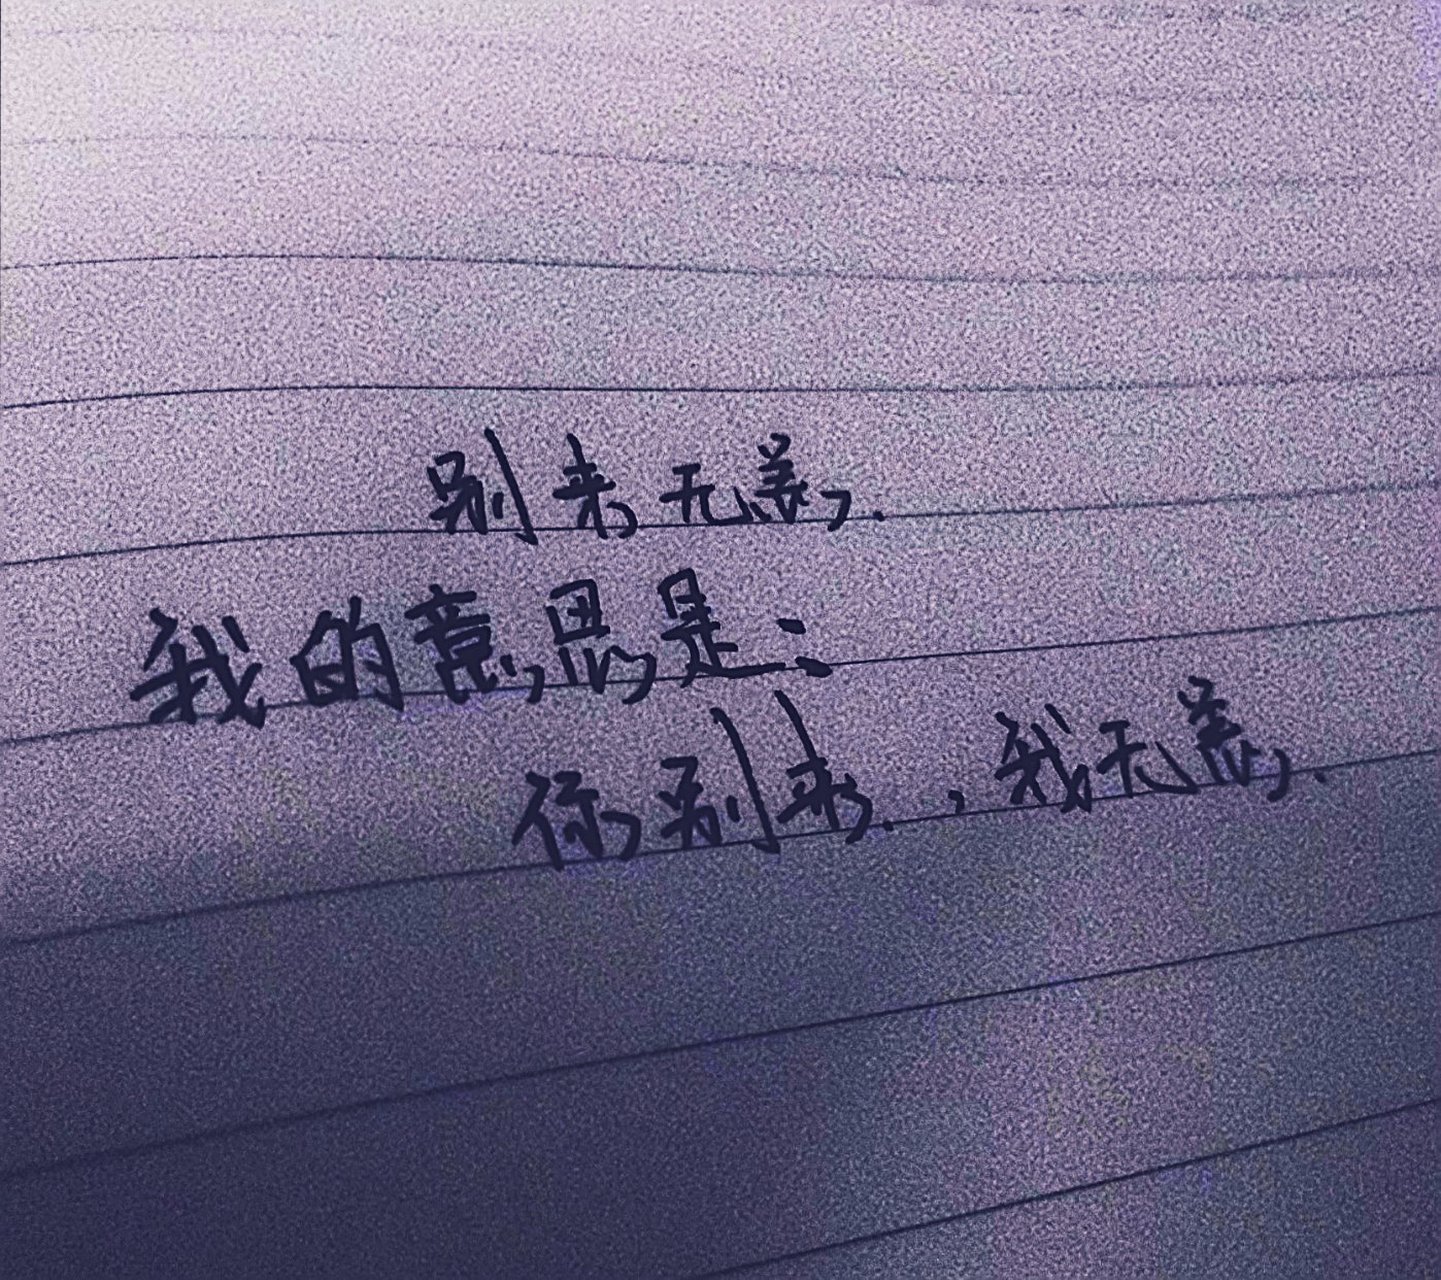 别来无恙.
我的意思是:
你别来.,我无恙.